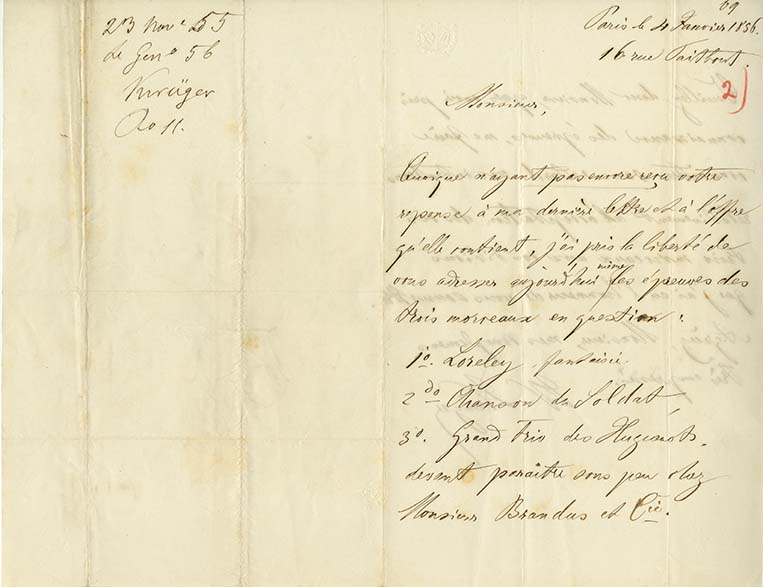 23 Novr 55
Le Genr 56
Krüger
Ro 11.
69
Paris le 4 Janvier 1856.
16 rue Taitbout.
2)
Monsieur,
Quoique n'ayant pas encore reçu votre
reponse à ma dernière lettre et à l'offre
qu'elle contient, j'ai pris la liberté de
vous adresser aujourd'hui même les épreuves des
trois morceaux en question:
1o. Loreley fantaisie.
2do Chanson du Soldat,
3o. Grand trio des Hugenots.
devant paraître sous peu chez
Monsieur Brandus et Cie.